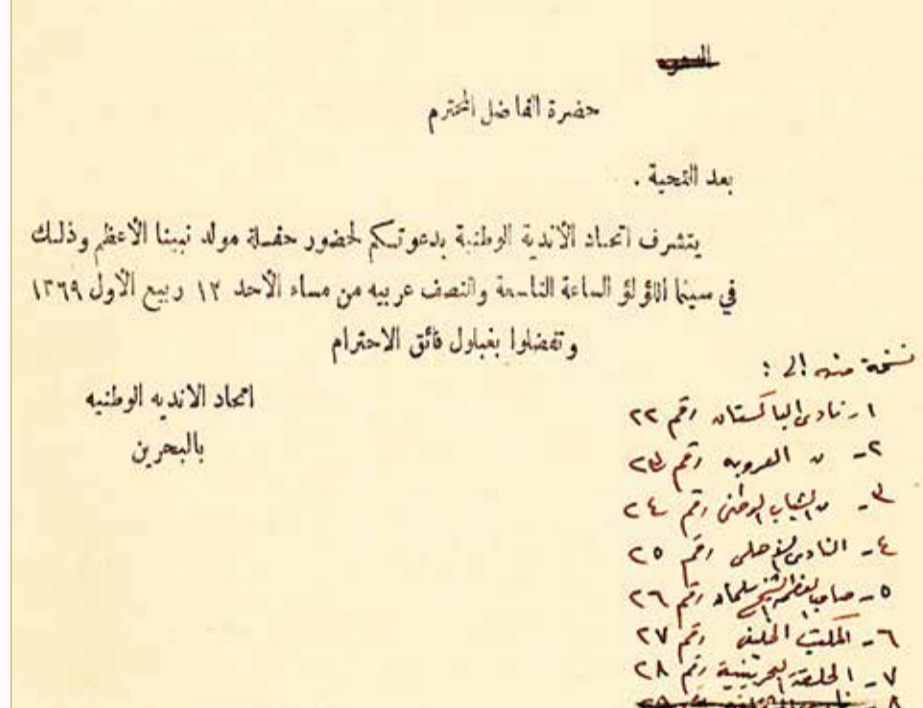 حضرة الفاضل المحترم
بعد التحية .
يتشرف اتحاد الأندية الوطنية بدعوتكم لحضور حفلة مولد نبينا الأعظم وذلك
في سينما اللؤلؤ الساعة التاسعة والنصف عربيه من مساء الأحد ١٢ ربيع الاول ١٣٦٩
وتفضلوا بقبول فائق الاحترام
اتحاد الانديه الوطنيه
بالبحرين
نسخة منه إلى :
١- نادي الباكستان رقم ٢٢
٢- " العروبه رقم ٢٣
٣- " الشباب الوطني رقم ٢٤
٤- النادي الأهلي رقم ٢٥
٥- صاحب العظمة الشيخ سلمان رقم ٢٦
٦- رقم ٢٧
٧- الحلقة البحرينية رقم ٢٨